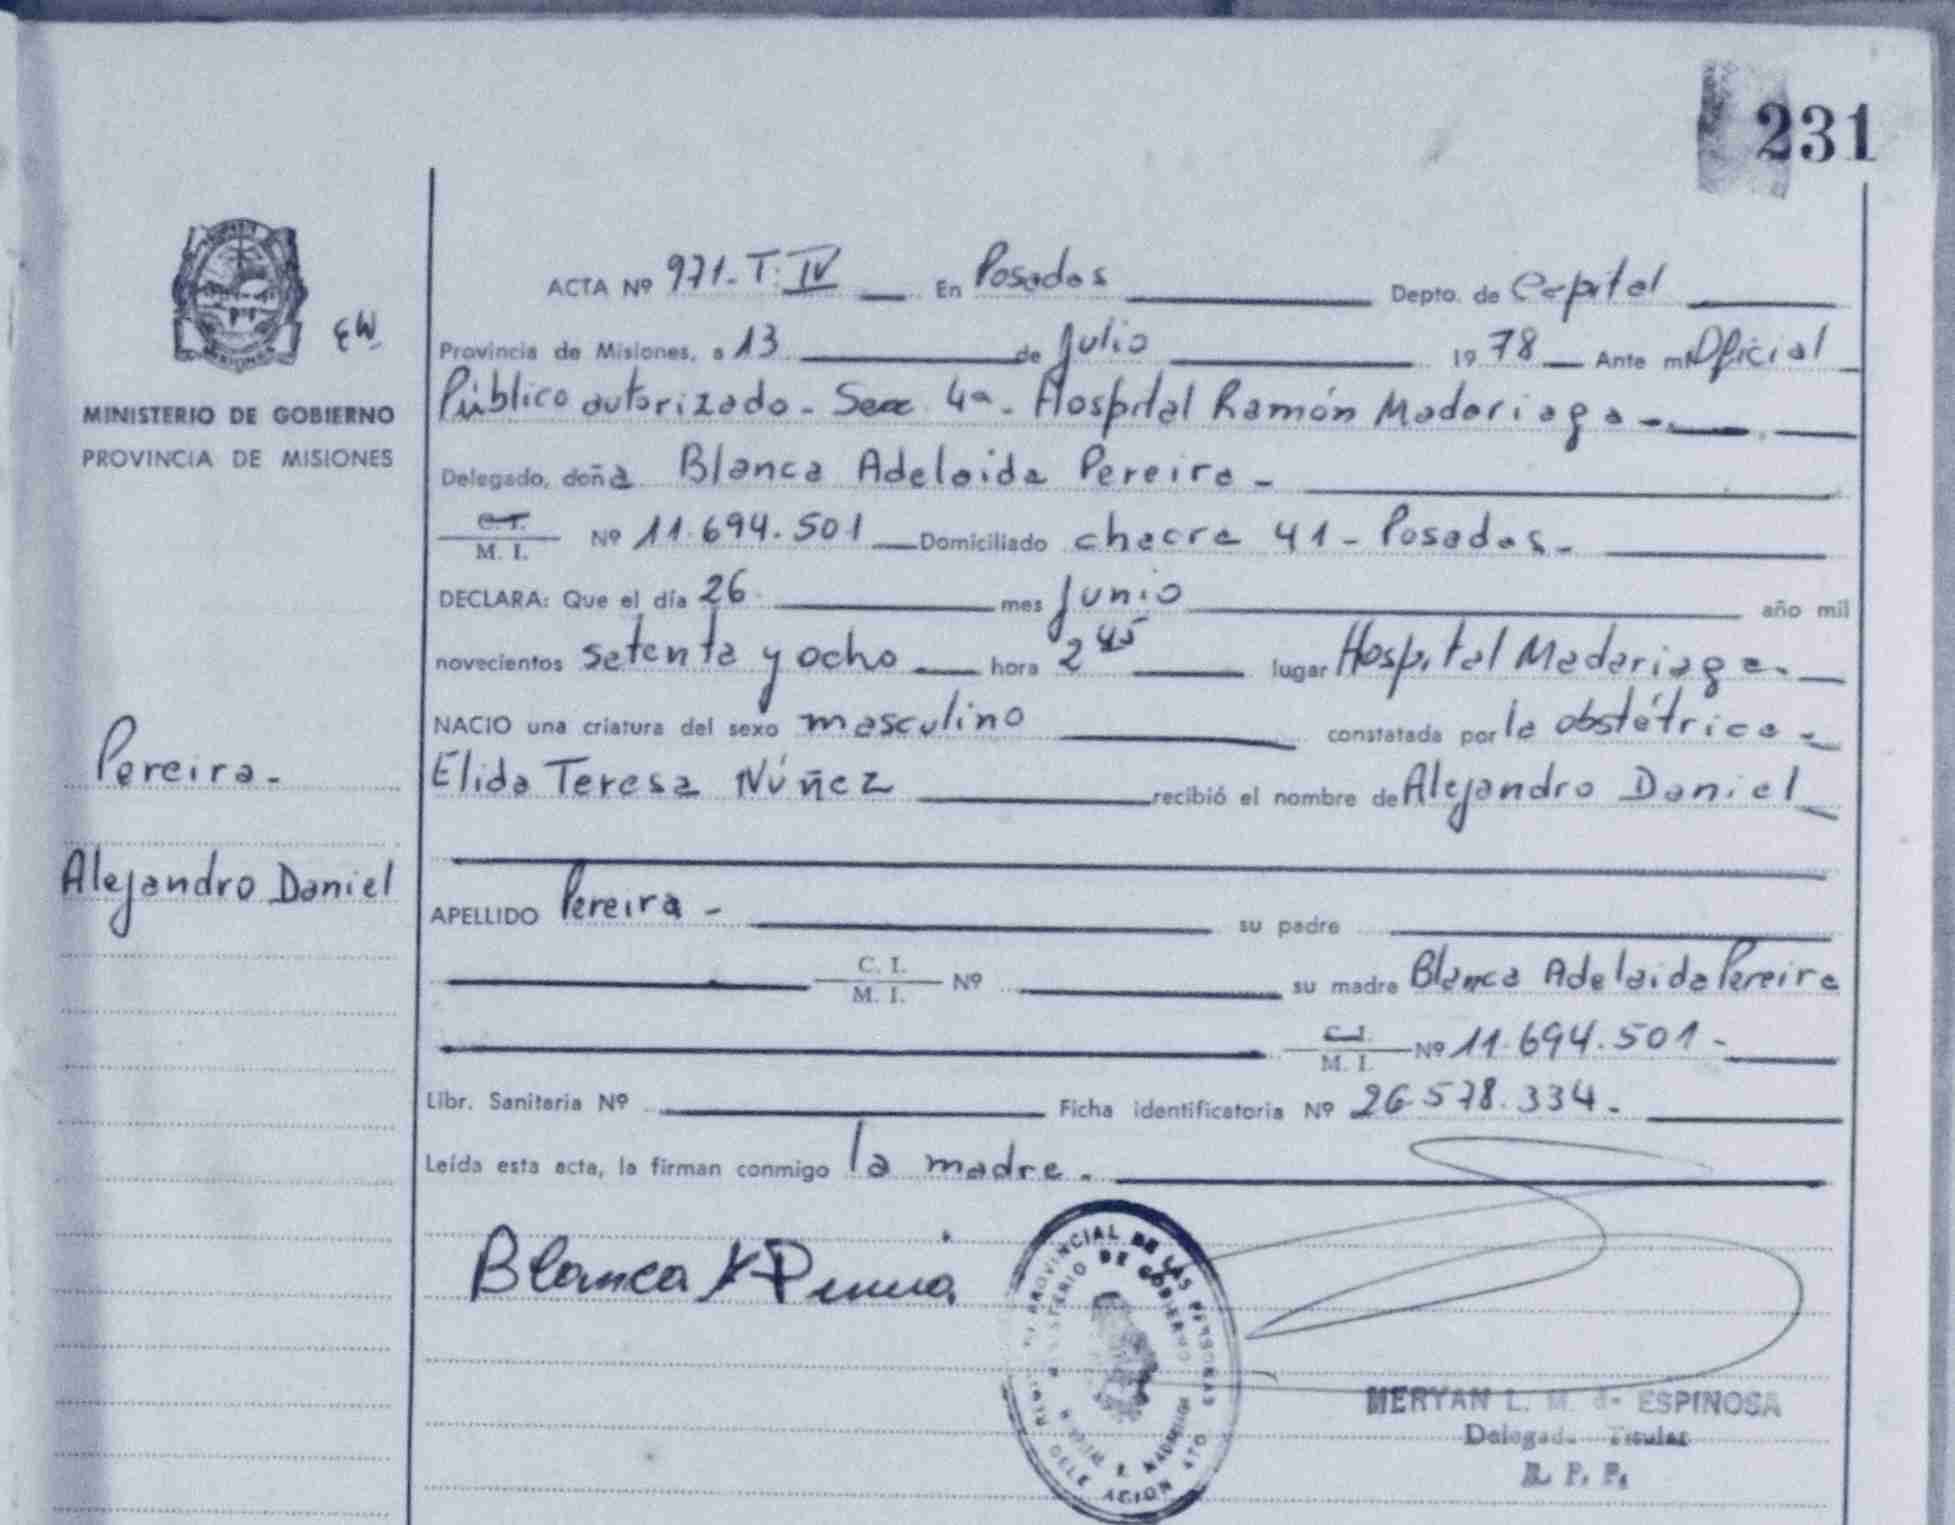 231
ACTA Nº 971-T. IV En Posadas Depto. de Capital
EW
Provincia de Misiones, a 13 de Julio 1978 Ante mí Oficial
Público autorizado - Secc. 4ª - Hospital Ramón Madariaga -
MINISTERIO DE GOBIERNO
PROVINCIA DE MISIONES
Delegado, doña Blanca Adelaida Pereira -
C. I.
M. I. Nº 11.694.501 Domiciliado chacra 41 - Posadas -
DECLARA: Que el día 26 mes Junio año mil
novecientos setenta y ocho hora 2 45 lugar Hospital Madariaga -
NACIO una criatura del sexo masculino constatada por la obstétrica -
Elida Teresa Núñez recibió el nombre de Alejandro Daniel
Pereira -
Alejandro Daniel
APELLIDO Pereira - su padre
C. I.
M. I. Nº su madre Blanca Adelaida Pereira
C. I.
M. I. Nº 11.694.501 -
Libr. Sanitaria Nº Ficha identificatoria Nº 26.578.334 -
Leída esta acta, la firman conmigo la madre -
Blanca
PROVINCIAL DE LAS PERSONAS
MINISTERIO DE GOBIERNO
MERYAN L. M. de ESPINOSA
Delegada Titular
R. P. P.